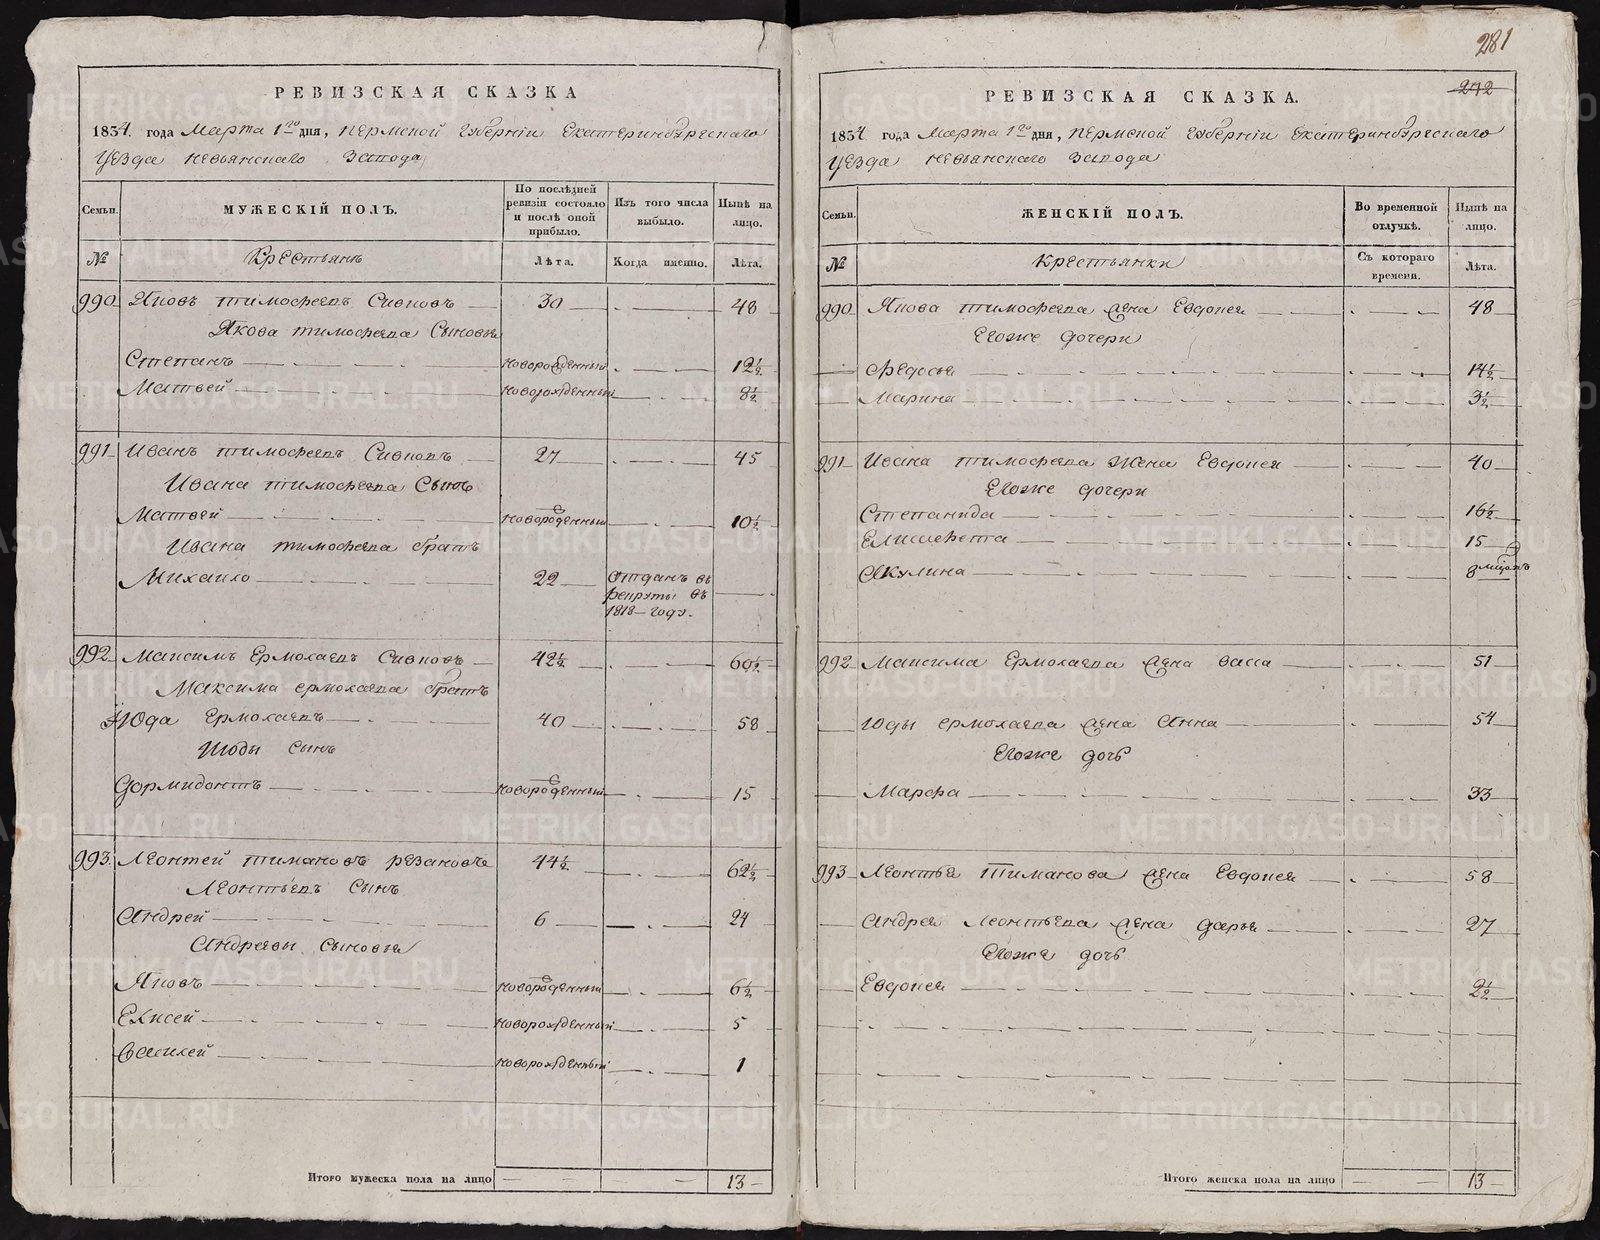 РЕВИЗСКАЯ СКАЗКА
1834. года Марта 1го дня, Пермской Губернiи Екатеринбургскаго
Уезда Невьянскаго Завода
Семьи. МУЖЕСКIЙ ПОЛЪ. По послѣдней ревизiи состояло и послѣ оной прибыло. Изъ того числа выбыло. Нынѣ на лицо.
№ Крестьянъ Лѣта. Когда именно. Лѣта.
990 Яковъ тимофеевъ Сивковъ 30 48
Якова тимофеева Сыновья
Степанъ новорожденный 12½
Матвей новорожденный 8½
991 Иванъ тимофеевъ Сивковъ 27 45
Ивана тимофеева Сынъ
Матвей новорожденный 10½
Ивана тимофеева братъ
Михаило 22 отданъ въ рекруты въ 1818 году.
992 Максимъ Ермолаевъ Сивковъ 42½ 60½
Максима ермолаева братъ
Юда Ермолаевъ 40 58
Июды сынъ
Дормидонтъ новорожденный 15
993. Леонтей тимановъ резановъ 44½ 62½
Леонтьевъ сынъ
Андрей 6 24
Андреевы сыновья
Яковъ новорожденный 6½
Елисей новорожденный 5
Василей новорожденный 1
Итого мужеска пола на лицо 13
281
272
РЕВИЗСКАЯ СКАЗКА.
1834 года Марта 1го дня, Пермской Губернiи Екатеринбургскаго
Уезда Невьянскаго Завода
Семьи. ЖЕНСКIЙ ПОЛЪ. Во временной отлучкѣ. Нынѣ на лицо.
№ Крестьянки Съ котораго времени. Лѣта.
990 Якова тимофеева жена Евдокея 48
Егоже дочери
Федосья 14½
Марина 3½
991 Ивана тимофеева Жена Евдокея 40
Егоже дочери
Степанида 16½
Елисавета 15
Акулина 8 мѣсяцъ
992 Максима Ермолаева жена васса 51
Юды ермолаева жена Анна 54
Егоже дочь
Марфа 33
993 Леонтья Тиманова жена Евдокея 58
Андрея Леонтьева жена дарья 27
Егоже дочь
Евдокея 2½
Итого женска пола на лицо 13
METRIKI.GASO-URAL.RU